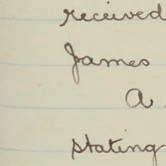 received
James
A
stating